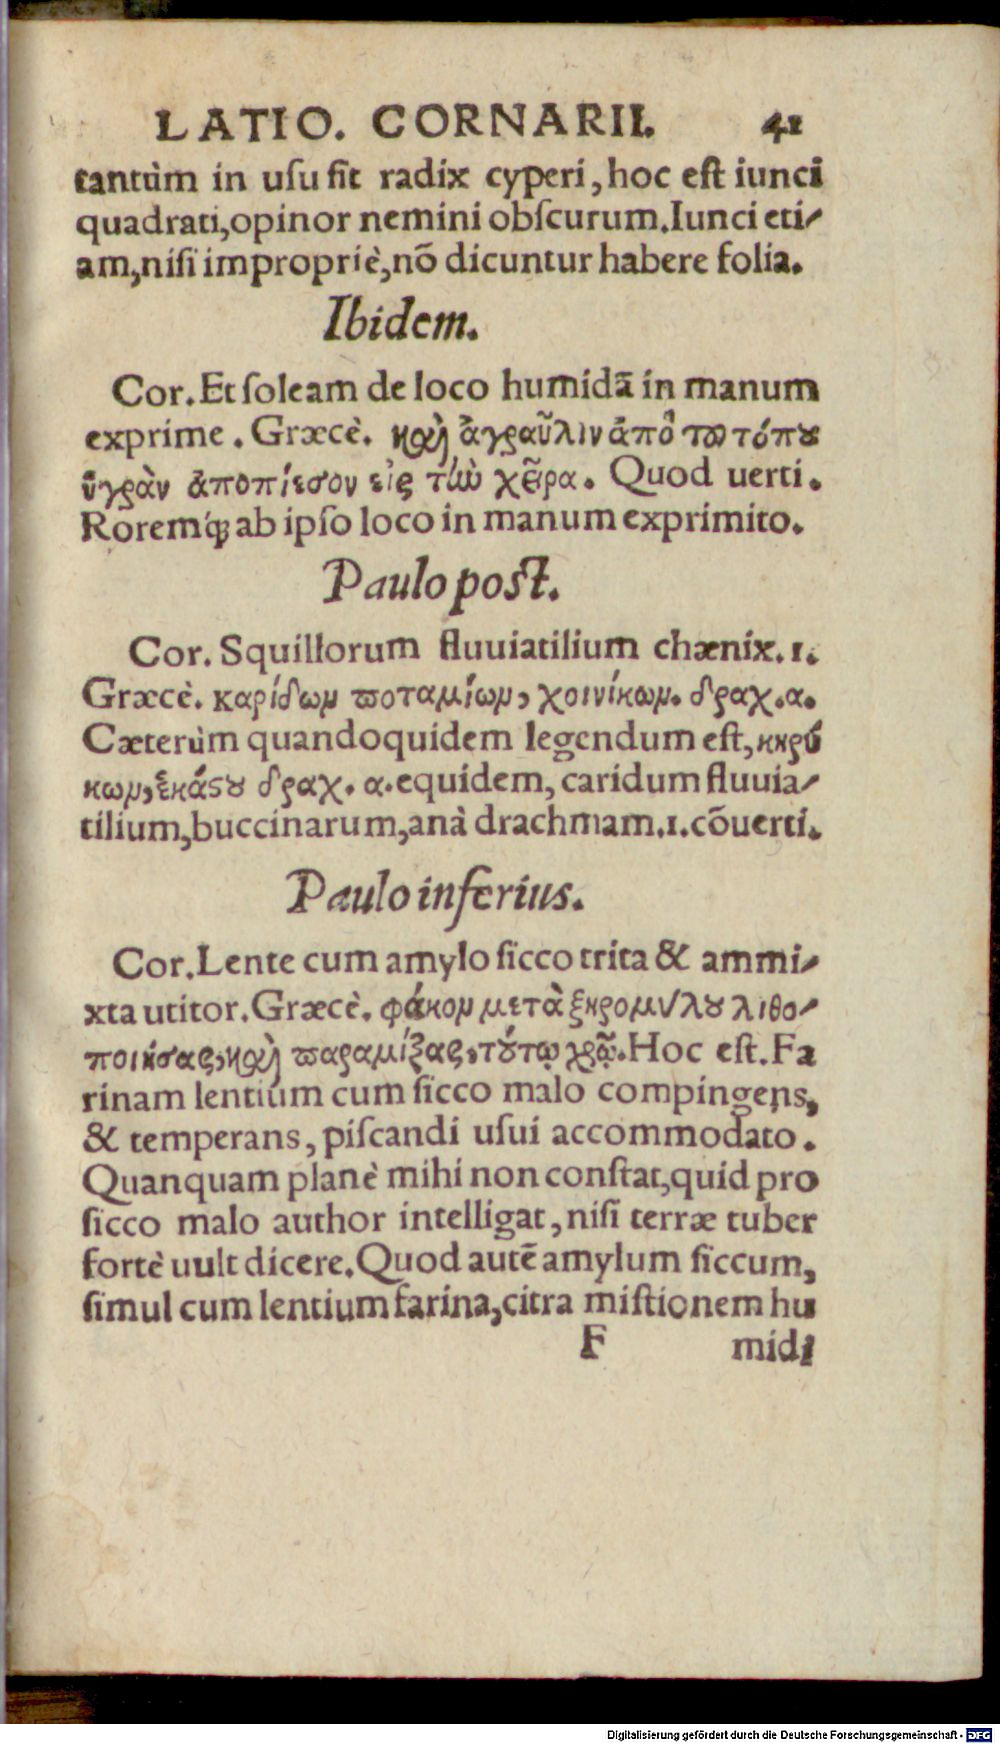 LATIO. CORNARII. 41
tantùm in usu sit radix cyperi, hoc est iunci
quadrati, opinor nemini obscurum. Iunci eti-
am, nisi impropriè, nõ dicuntur habere folia.
Ibidem.
Cor. Et soleam de loco humidã in manum
exprime. Græcè. καὶ ἀγραῦλιν ἀπὸ τοῦ τόπου
ὑγρὰν ἀποπίεσον εἰς τὴν χεῖρα. Quod uerti.
Roremq́; ab ipso loco in manum exprimito.
Paulo post.
Cor. Squillorum fluuiatilium chænix. 1.
Græcè. καρίδων ποταμίων, χοινίκων. δραχ. α.
Cæterùm quandoquidem legendum est, κηρύ
κων, ἑκάστου δραχ. α. equidem, caridum fluuia-
tilium, buccinarum, anà drachmam. 1. cõuerti.
Paulo inferius.
Cor. Lente cum amylo sicco trita & ammi-
xta utitor. Græcè. φάκον μετὰ ξηρομύλου λιθο-
ποιήσας, καὶ παραμίξας, τούτῳ χρῶ. Hoc est. Fa
rinam lentium cum sicco malo compingens,
& temperans, piscandi usui accommodato.
Quanquam planè mihi non constat, quid pro
sicco malo author intelligat, nisi terræ tuber
fortè uult dicere. Quod autẽ amylum siccum,
simul cum lentium farina, citra mistionem hu
F midi
Digitalisierung gefördert durch die Deutsche Forschungsgemeinschaft - DFG